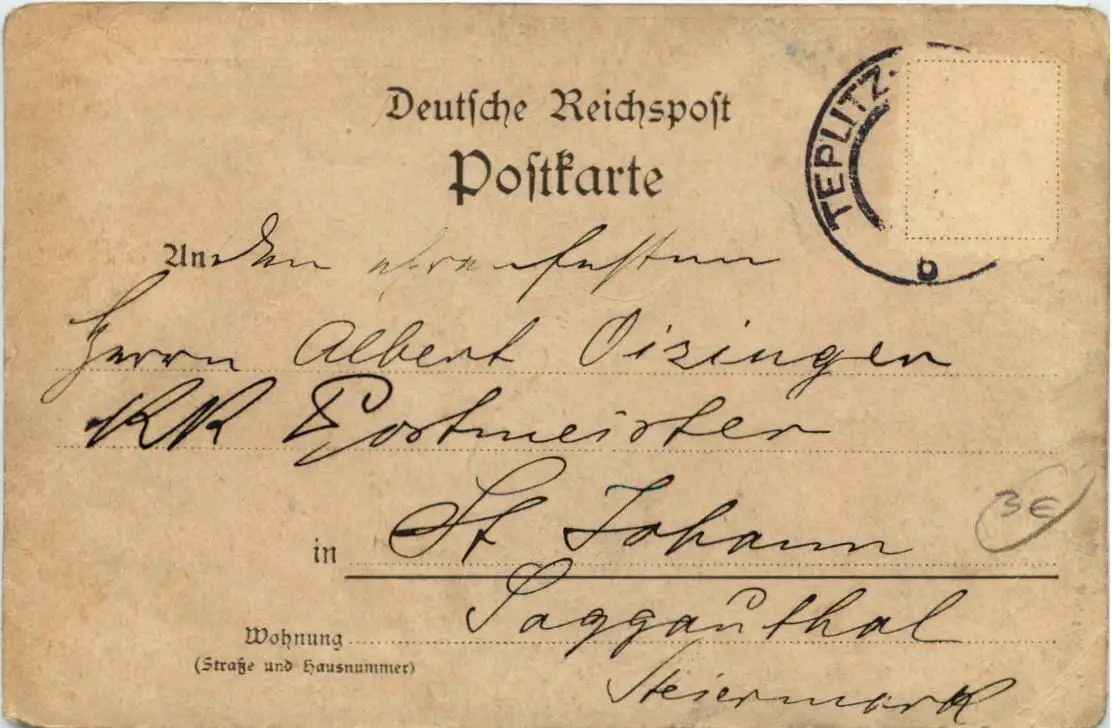 Deutsche Reichspost
Postkarte
TEPLITZ-
b
An den ehrenfesten
Herrn Albert Oizinger
KK Postmeister
in St Johann
Saggauthal
Wohnung
(Straße und Hausnummer)
Steiermark
3€